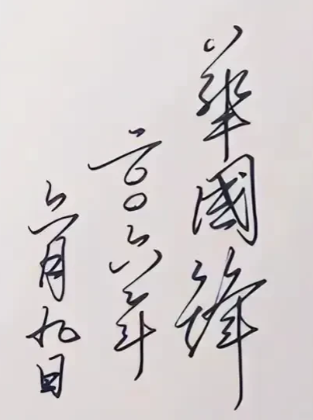 華國鋒
二〇〇六年
六月九日